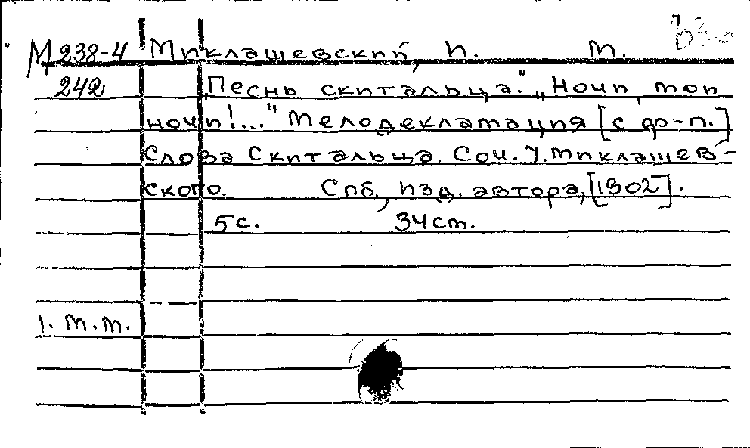 М238-4 Миклашевский, И. М.
242 Песнь скитальца. "Ночи, мои
ночи!..." Мелодекламация [с ф-п.]
Слова Скитальца. Соч. 7. Миклашев-
ского. Спб, изд. автора, [1902].
5с. 34см.
1. м.м.